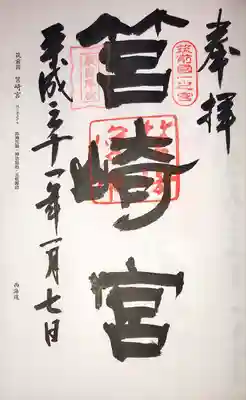 奉拝
筑前國一之宮
筥崎宮
平成三十一年一月七日
筑前国 筥崎宮
西海道